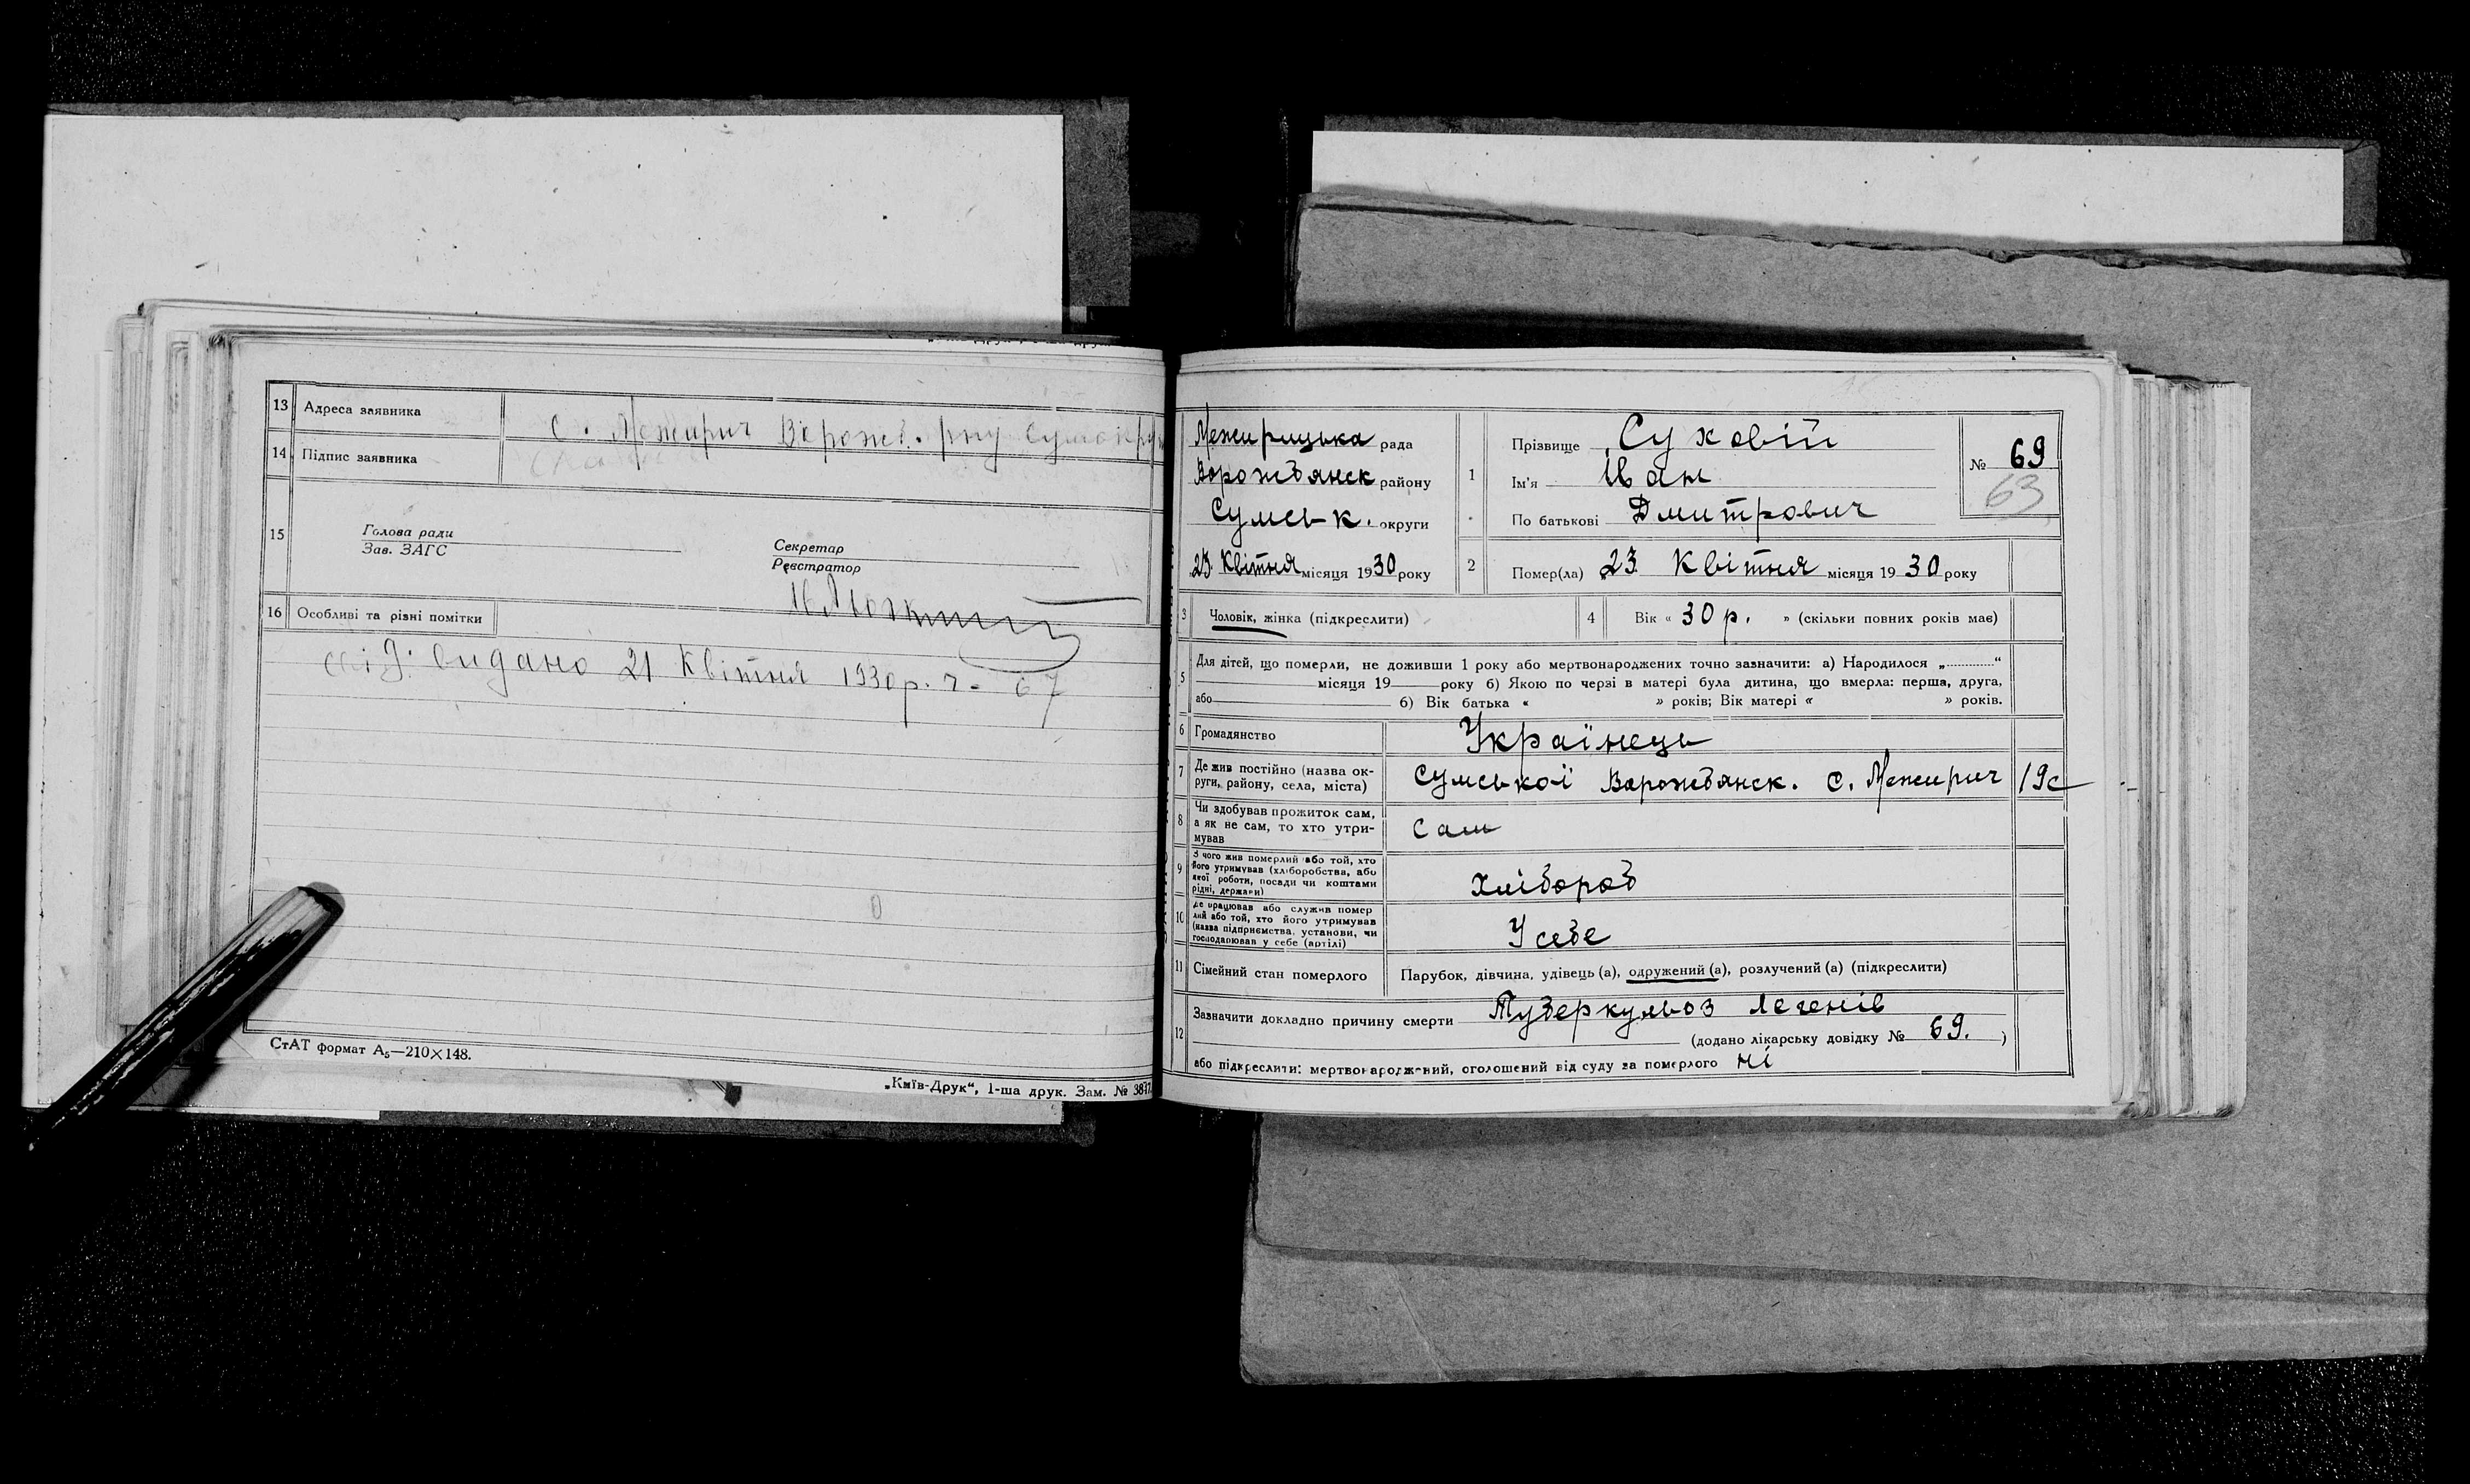 13 Адреса заявника с. Межирич Ворожб. р-ну Сумокруги
14 Підпис заявника
15 Голова ради
Зав. ЗАГС
Секретар
Реєстратор
16 Особливі та різні помітки
видано 21 Квітня 1930 р. ч. 67
СтАТ формат А₅—210×148.
„Київ-Друк“, 1-ша друк. Зам. №
Межирицька рада
Ворожбянск району
Сумськ. округи
23 Квітня місяця 1930 року
1 Прізвище Суховій
Ім'я Іван
По батькові Дмитрович
№ 69
63
2 Помер(ла) 23 Квітня місяця 1930 року
3 Чоловік, жінка (підкреслити)
4 Вік « 30 р. » (скільки повних років має)
5 Для дітей, що померли, не доживши 1 року або мертвонароджених точно зазначити: а) Народилося „ “
місяця 19 року б) Якою по черзі в матері була дитина, що вмерла: перша, друга,
або б) Вік батька « » років; Вік матері « » років.
6 Громадянство Українець
7 Де жив постійно (назва ок-
руги, району, села, міста) Сумської Ворожбянск. с. Межирич 19с
8 Чи здобував прожиток сам,
а як не сам, то хто утри-
мував Сам
9 З чого жив померлий або той, хто
його утримував (хліборобства, або
якої роботи, посади чи коштами
рідні, держави) Хлібороб
10 Де працював або служив помер
лий або той, хто його утримував
(назва підприємства, установи, чи
господарював у себе (артілі) У себе
11 Сімейний стан померлого Парубок, дівчина, удівець (а), одружений (а), розлучений (а) (підкреслити)
12 Зазначити докладно причину смерти Туберкульоз легенів
(додано лікарську довідку № 69. )
або підкреслити: мертвонароджений, оголошений від суду за померлого ні